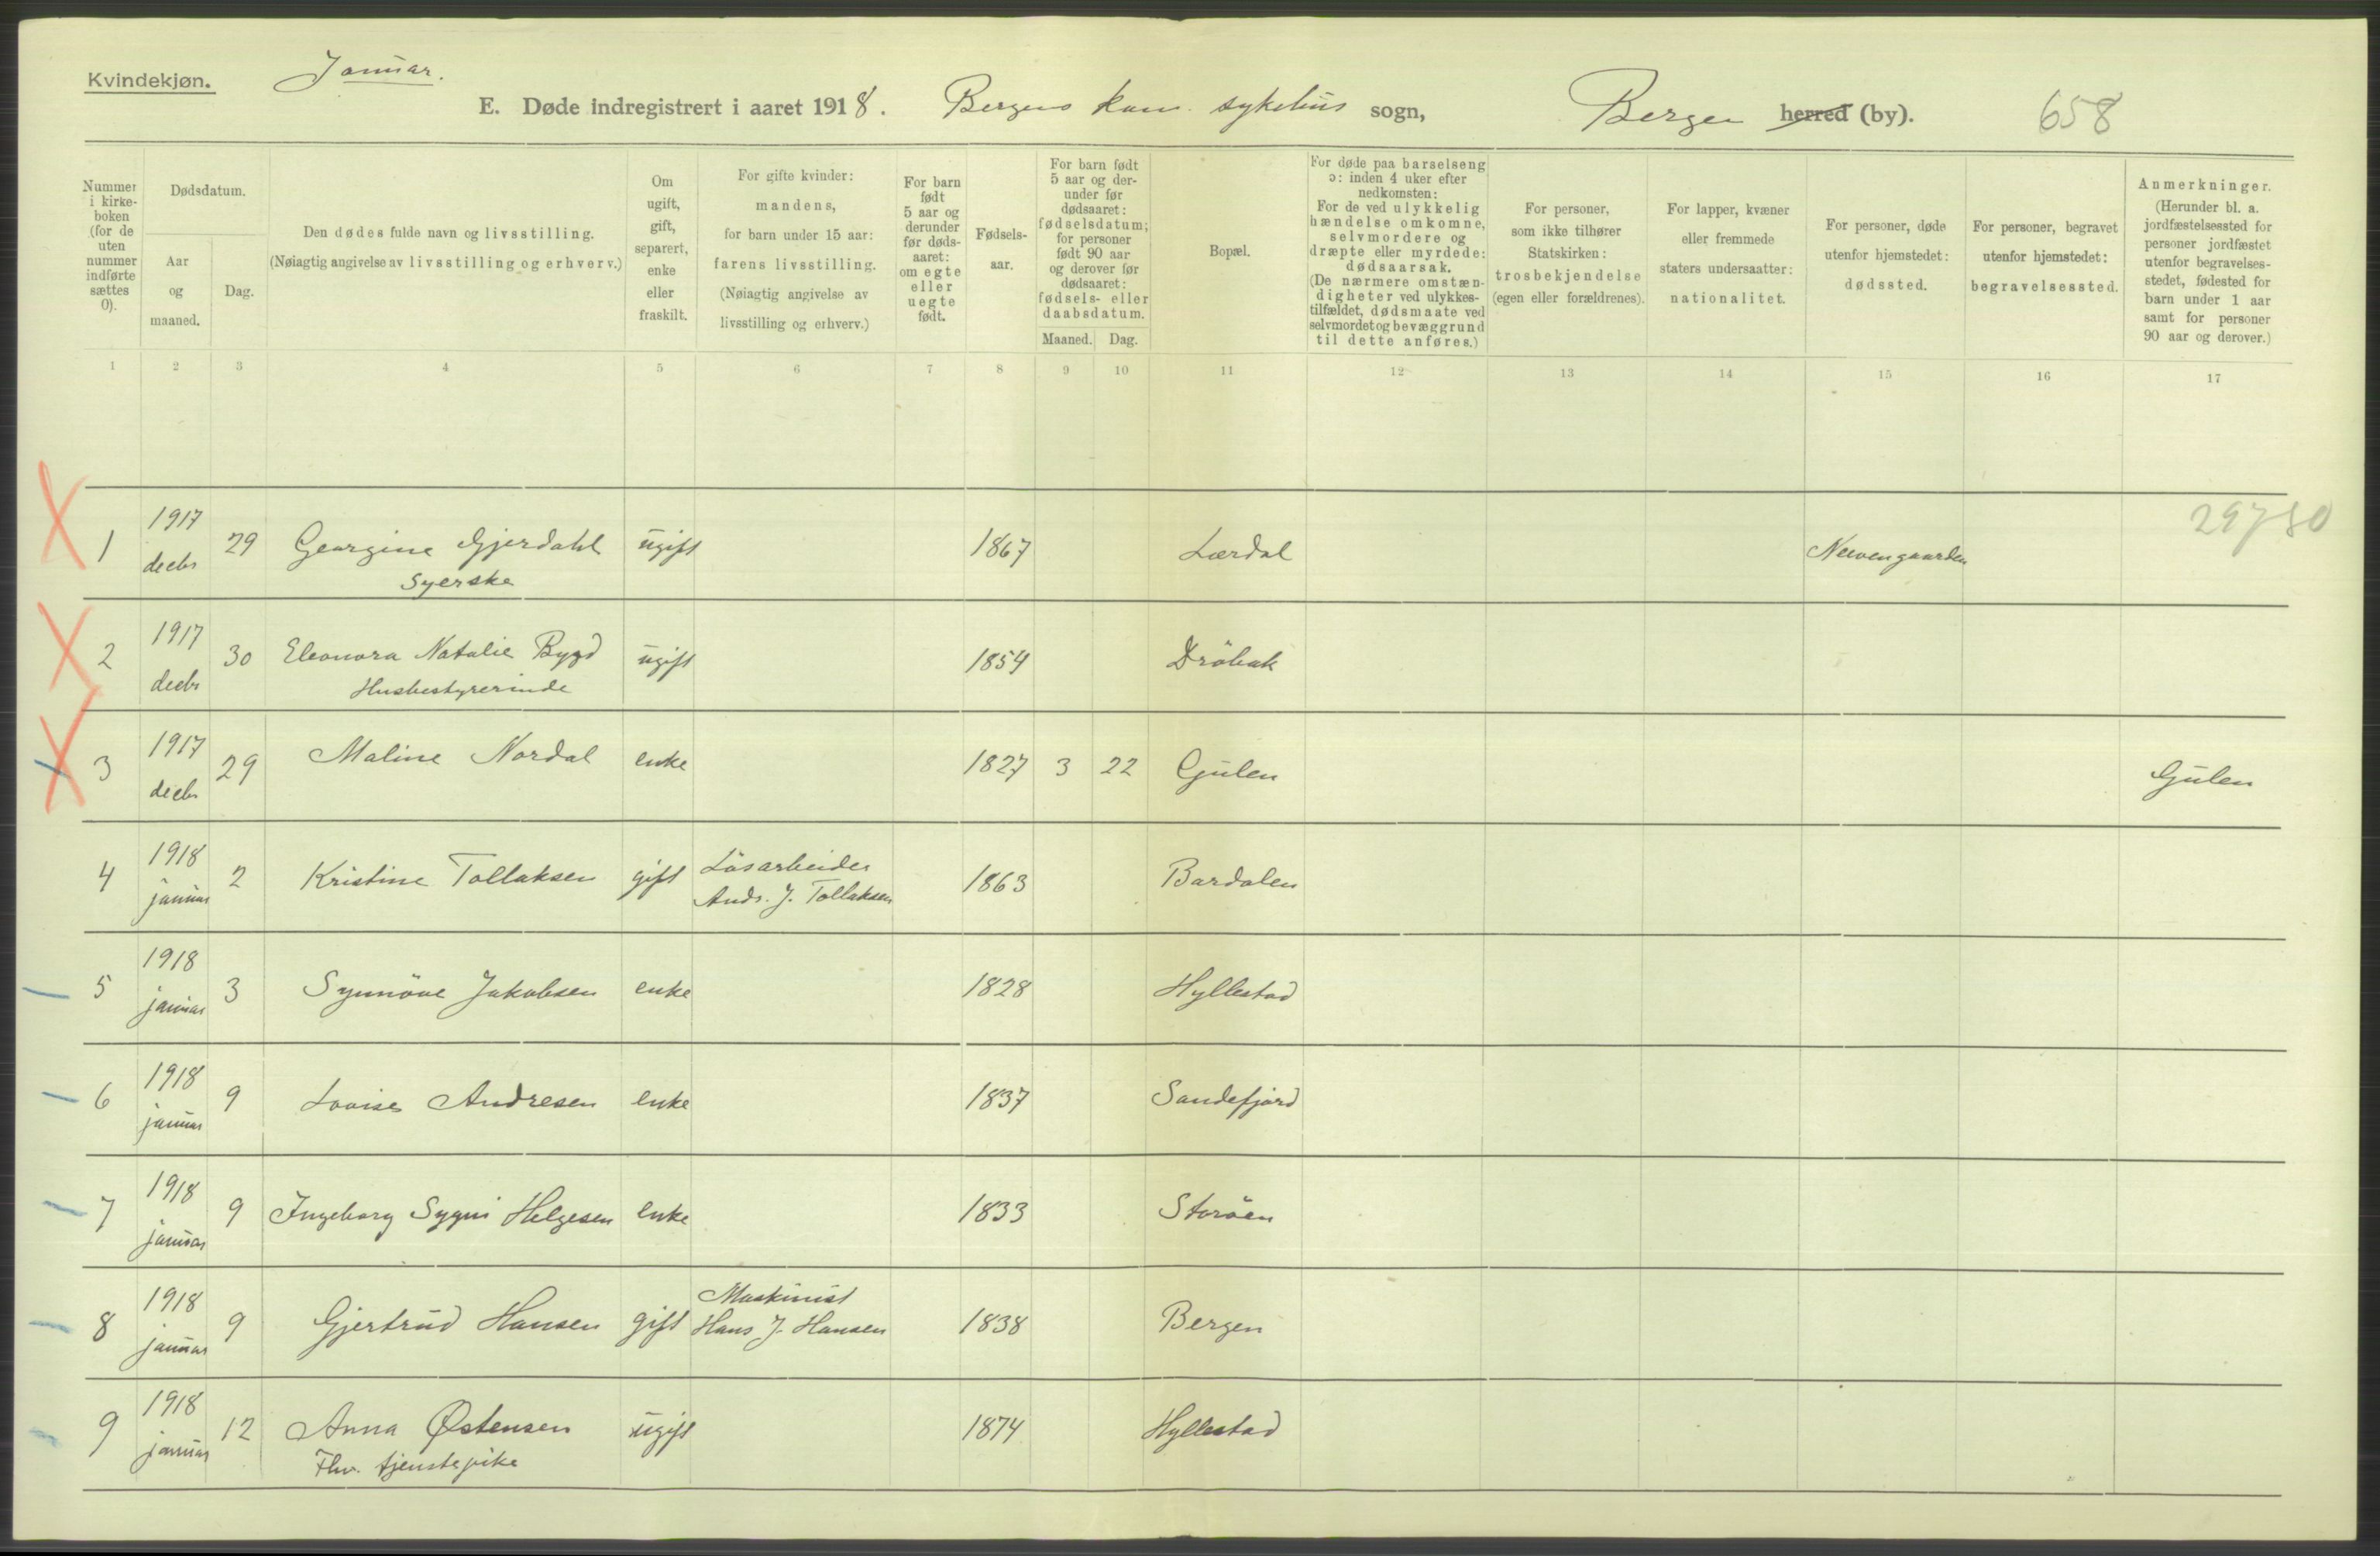 Kvindekjøn. Januar.
E. Døde indregistrert i aaret 1918. Bergens kom. sykehus sogn, Bergen herred (by). 658
Nummer i kirkeboken (for de uten nummer indførte sættes 0).
Dødsdatum.
Aar og maaned.
Dag.
Den dødes fulde navn og livsstilling.
(Nøiagtig angivelse av livsstilling og erhverv.)
Om ugift, gift, separert, enke eller fraskilt.
For gifte kvinder: mandens, for barn under 15 aar: farens livsstilling. (Nøiagtig angivelse av livsstilling og erhverv.)
For barn født 5 aar og derunder før dødsaaret: om egte eller uegte født.
Fødselsaar.
For barn født 5 aar og derunder før dødsaaret: fødselsdatum; for personer født 90 aar og derover før dødsaaret: fødsels- eller daabsdatum.
Maaned. Dag.
Bopæl.
For døde paa barselseng ɔ: inden 4 uker efter nedkomsten: For de ved ulykkelig hændelse omkomne, selvmordere og dræpte eller myrdede: dødsaarsak. (De nærmere omstændigheter ved ulykkestilfældet, dødsmaate ved selvmordet og bevæggrund til dette anføres.)
For personer, som ikke tilhører Statskirken: trosbekjendelse (egen eller forældrenes).
For lapper, kvæner eller fremmede staters undersaatter: nationalitet.
For personer, døde utenfor hjemstedet: dødssted.
For personer, begravet utenfor hjemstedet: begravelsessted.
Anmerkninger. (Herunder bl. a. jordfæstelsessted for personer jordfæstet utenfor begravelsesstedet, fødested for barn under 1 aar samt for personer 90 aar og derover.)
1 2 3 4 5 6 7 8 9 10 11 12 13 14 15 16 17
29780
1 1917 decbr 29 Georgine Gjerdahl ugift 1867 Lærdal Neevengaarden
Syerske
2 1917 decbr 30 Eleonora Natalie Bygd ugift 1854 Dröbak
Husbestyrerinde
3 1917 decbr 29 Maline Nordal enke 1827 3 22 Gulen Gulen
4 1918 januar 2 Kristine Tollaksen gift Lösarbeider 1863 Bardalen
Ands. J. Tollaksen
5 1918 januar 3 Synnöve Jakobsen enke 1828 Hyllestad
6 1918 januar 9 Lovise Andresen enke 1837 Sandefjord
7 1918 januar 9 Ingeborg Sygni Helgesen enke 1833 Storöen
8 1918 januar 9 Gjertrud Hansen gift Maskinist 1838 Bergen
Hans J. Hansen
9 1918 januar 12 Anna Østensen ugift 1874 Hyllestad
Fhv. tjenestepike